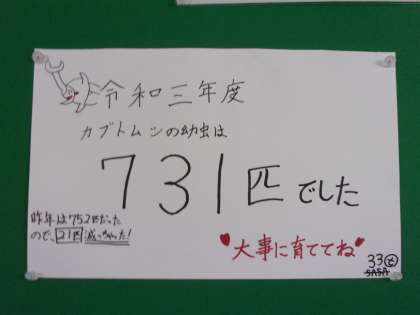 令和三年度
カブトムシの幼虫は
731匹でした
昨年は752匹だった
ので、21匹減っちゃった!
大事に育ててね
33
SASA